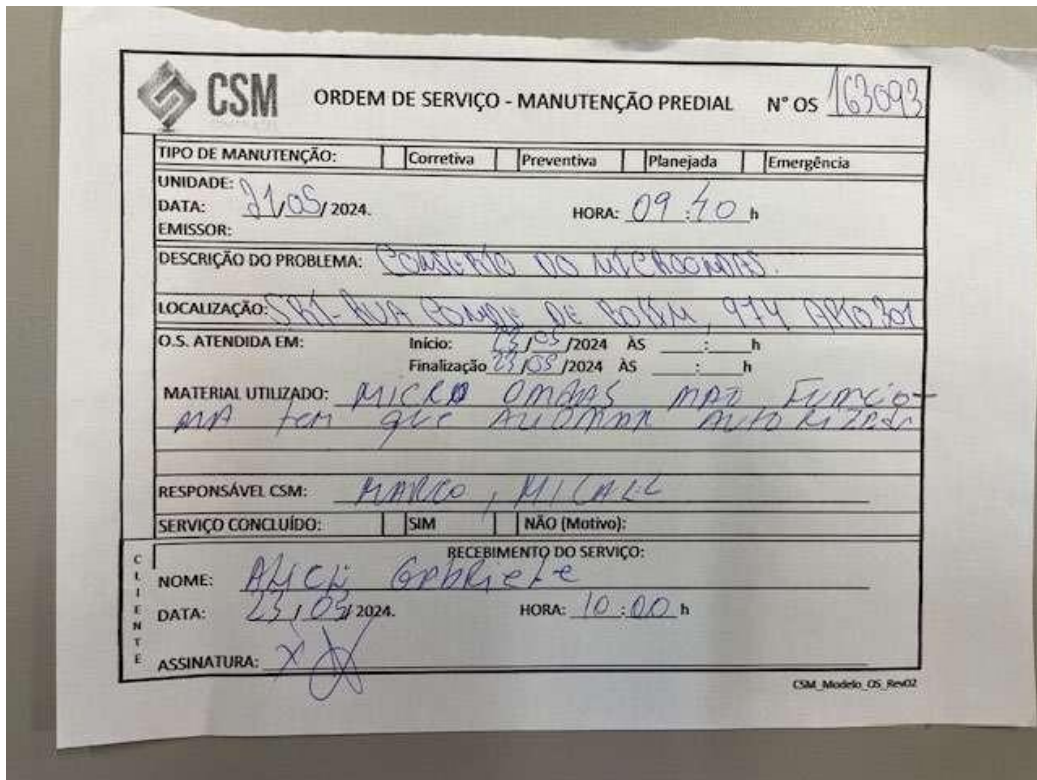 CSM ORDEM DE SERVIÇO - MANUTENÇÃO PREDIAL N° OS 163093
TIPO DE MANUTENÇÃO: Corretiva Preventiva Planejada Emergência
UNIDADE:
DATA: 21/05/2024. HORA: 09:40 h
EMISSOR:
DESCRIÇÃO DO PROBLEMA: CONSERTO DO MICROONDAS.
LOCALIZAÇÃO: RUA CONDE DE BONFIM, 974 APTO 301
O.S. ATENDIDA EM: Início: 23/05/2024 ÀS : h
Finalização 23/05/2024 ÀS : h
MATERIAL UTILIZADO: MICRO ONDAS NAO FUNCIO-
NA TEM QUE
RESPONSÁVEL CSM: MARCO,
SERVIÇO CONCLUÍDO: SIM NÃO (Motivo):
CLIENTE
RECEBIMENTO DO SERVIÇO:
NOME: GABRIELE
DATA: 23/05/2024. HORA: 10:00 h
ASSINATURA: X
CSM_Modelo_OS_Rev02